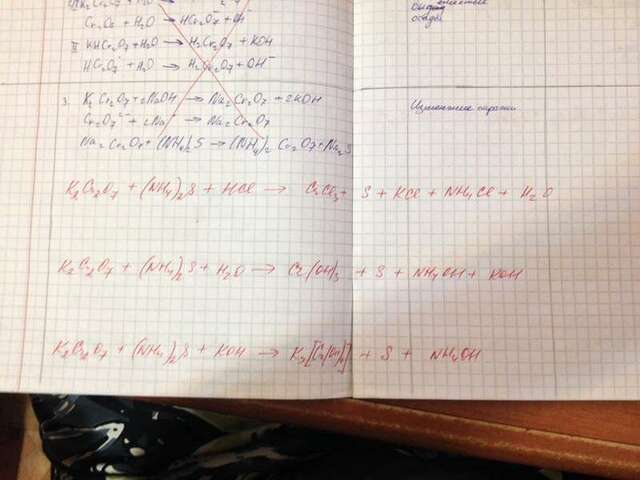 Cr₂O₇ + H₂O → HCr₂O₇⁻ + OH⁻
II KHCr₂O₇ + H₂O → H₂Cr₂O₇ + KOH
HCr₂O₇⁻ + H₂O → H₂Cr₂O₇ + OH⁻
осадка
3. K₂Cr₂O₇ + 2NaOH → Na₂Cr₂O₇ + 2KOH
Cr₂O₇²⁻ + 2Na⁺ → Na₂Cr₂O₇
Na₂Cr₂O₇ + (NH₄)₂S → (NH₄)₂Cr₂O₇ + Na₂S
K₂Cr₂O₇ + (NH₄)₂S + HCl → CrCl₃ + S + KCl + NH₄Cl + H₂O
K₂Cr₂O₇ + (NH₄)₂S + H₂O → Cr(OH)₃ + S + NH₄OH + KOH
K₂Cr₂O₇ + (NH₄)₂S + KOH → K₃[Cr(OH)₆] + S + NH₄OH